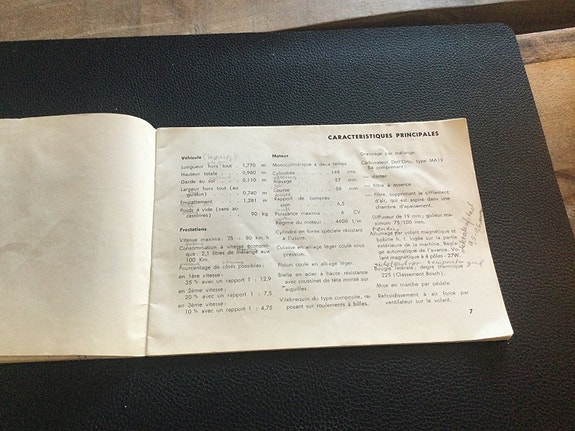 CARACTERISTIQUES PRINCIPALES
Véhicule
Longueur hors tout . 1,770 m
Hauteur totale . . . 0,960 m
Garde au sol . . . . 0,110 m
Largeur hors tout (au
guidon) . . . . . 0,740 m
Empattement . . . . 1,281 m
Poids à vide (sans accessoires) . . . . . 90 kg
Prestations
Vitesse maxima: 75 - 80 km/h
Consommation à vitesse économique: 2,1 litres de mélange aux
100 Km.
Pourcentage de côtes possibles:
en 1ère vitesse:
35 % avec un rapport 1 : 12,9
en 2ème vitesse:
20 % avec un rapport 1 : 7,5
en 3ème vitesse:
10 % avec un rapport 1 : 4,75
Moteur
Monocylindrique à deux temps
Cylindrée . . . 148 cmc
Alésage . . . 57 mm
Course . . . 58 mm
Rapport de compression . . . . 6,5
Puissance maxima . 6 CV
Régime du moteur . 4600 t/m
Cylindre en fonte spéciale résistant
à l'usure.
Culasse en alliage léger coulé sous
pression.
Piston coulé en alliage léger.
Bielle en acier à haute résistance
avec coussinet de tête monté sur
aiguilles.
Vilebrequin du type composite, reposant sur roulements à billes.
Graissage par mélange.
Carburateur Dell'Orto, type MA19
B4 comprenant:
— starter
— filtre à essence
— filtre, supprimant le sifflement
d'air, qui est aspiré dans une
chambre d'apaisement.
Diffuseur de 19 mm; gicleur maximum 75/100 mm.
Allumage par volant magnétique et
bobine h. t. logée sur la partie
extérieure de la machine. Réglage automatique de l'avance. Volant magnétique à 4 pôles - 27W.
Bougie latérale; degré thermique
225 (Classement Bosch).
Mise en marche par pédale.
Refroidissement à air forcé par
ventilateur sur le volant.
7